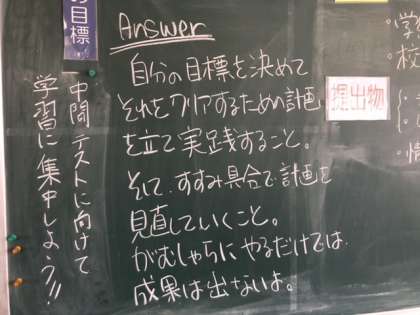 の目標
中間テストに向けて
学習に集中しよう!!
Answer
自分の目標を決めて
それをクリアするための計画
を立て実践すること。
そして、すすみ具合で計画を
見直していくこと。
がむしゃらにやるだけでは
成果は出ないよ。
提出物